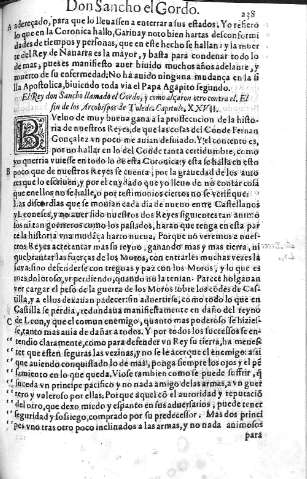 Don Sancho el Gordo. 238
A adereçado, para que lo lleuassen a enterrar a sus estados. Yo refiero
lo que en la Coronica hallo, Garibay noto bien hartas desconformi
dades de tiempos y personas, que en este hecho se hallan: y la muer
te del Rey de Nauarra es la mayor, y basta para condenar todo lo
de mas, pues es manifiesto auer biuido muchos años adelante, y
muerto de su enfermedad: No há auido ninguna mudança en la si
lla Apostolica, biuiendo toda via el Papa Agapito segundo.
El Rey don Sancho llamado el Gordo, y como alçaron otro contra el. El
fin de los Arçobispos de Toledo Capitulo, XXVII.
BVeluo de muy buena gana a la prosecucion de la histo
ria de nuestros Reyes, de que las cosas del Conde Fernan
Gonçalez vn poco me auian desuiado. Y el contento es,
por no hallar en lo del Conde tanta certidumbre, como
yo querria vuiese en todo lo de esta Coronica: y esta se halla en esto
B poco que de nuestros Reyes se cuenta; por la grauedad de los auto
res que lo escriuen, y por el cuydado que yo lleuo de no contar cosa
que en ellos no se halle, o por testimonios ciertos no se verifique.
Las discordias que se mouian cada dia de nueuo entre Castellanos
y Leoneses, y no auer sido nuestros dos Reyes siguientes tan animo
sos ni tan guerreros como los passados, haran que tenga en esta par
te la historia vna mudãça harto nueua. Porque no veremos a nues-
tros Reyes acrecentar mas su reyno, ganando mas y mas tierra, ni
quebrantar las fuerças de los Moros, con entrarles muchas vezes la
suya: sino defenderse con treguas y paz con los Moros, y lo que es
mas doloroso, yr perdiendo, quando no la tenian. Parece holgauan
ver cargar el peso de la guerra de los Moros sobre los Cõdes de Cas-
tilla, y a ellos dexauan padecer: sin aduertirse, como todo lo que en
Castilla se perdia, redundaua manifiestamente en daño del reyno
C de Leon, y que el comun enemigo, quanto mas poderoso se hazie-
se, tanto mas auia de dañar a todos. Y por todos los successos se en-
tendio claramente, como para defender vn Rey su tierra, ha menes-
ter que esten seguras las vezinas, y no se le acerque el enemigo: assi
que auiendo conquistado lo de mas, ponga siempre los ojos y el pẽ
samiento en lo que queda. Viose tambien como se puede suffrir, q̃
suceda vn principe pacifico y no nada amigo de las armas, a vn guer
rero y valeroso por ellas. Porque aquel cõ el autoridad y reputaciõ
del otro, que dexo miedo y espanto en sus aduersarios, puede tener
seguridad y sosiego, comprado por su predecessor. Mas dos princi
pes vno tras otro poco inclinados a las armas, y no nada animosos
para